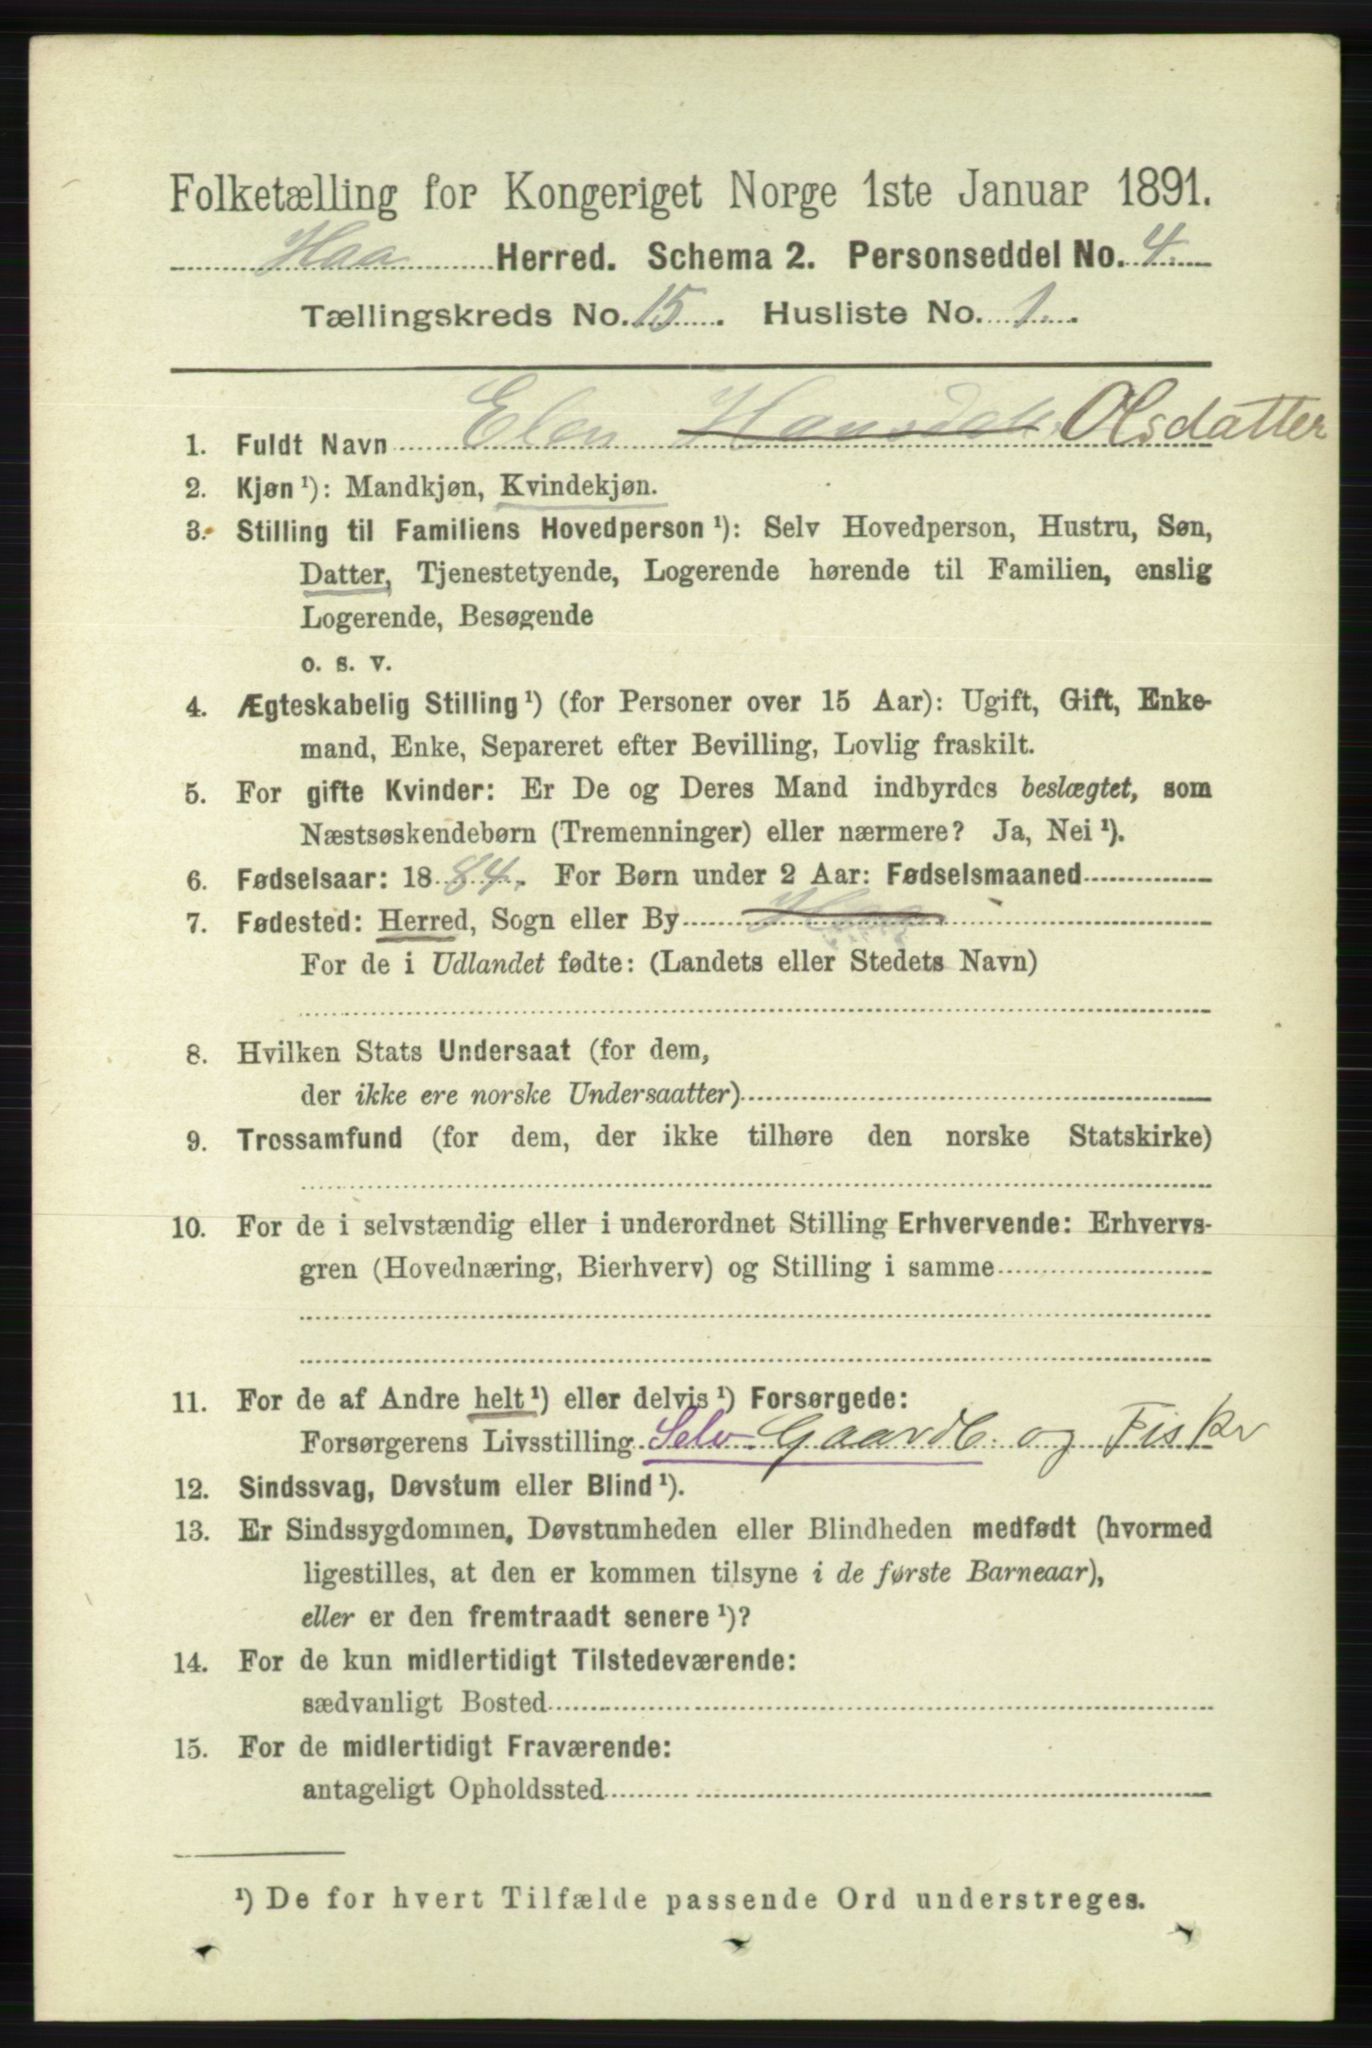 Folketælling for Kongeriget Norge 1ste Januar 1891.
Haa Herred. Schema 2. Personseddel No. 4.
Tællingskreds No. 15. Husliste No. 1.
1. Fuldt Navn Elen Hansdatr Olsdatter
2. Kjøn ¹): Mandkjøn, Kvindekjøn.
3. Stilling til Familiens Hovedperson ¹): Selv Hovedperson, Hustru, Søn,
Datter, Tjenestetyende, Logerende hørende til Familien, enslig
Logerende, Besøgende
o. s. v.
4. Ægteskabelig Stilling ¹) (for Personer over 15 Aar): Ugift, Gift, Enke-
mand, Enke, Separeret efter Bevilling, Lovlig fraskilt.
5. For gifte Kvinder: Er De og Deres Mand indbyrdes beslægtet, som
Næstsøskendebørn (Tremenninger) eller nærmere? Ja, Nei ¹).
6. Fødselsaar: 1884. For Børn under 2 Aar: Fødselsmaaned
7. Fødested: Herred, Sogn eller By Haa
For de i Udlandet fødte: (Landets eller Stedets Navn)
8. Hvilken Stats Undersaat (for dem,
der ikke ere norske Undersaatter)
9. Trossamfund (for dem, der ikke tilhøre den norske Statskirke)
10. For de i selvstændig eller i underordnet Stilling Erhvervende: Erhvervs-
gren (Hovednæring, Bierhverv) og Stilling i samme
11. For de af Andre helt ¹) eller delvis ¹) Forsørgede:
Forsørgerens Livsstilling Selv Gaardb. og Fisker
12. Sindssvag, Døvstum eller Blind ¹).
13. Er Sindssygdommen, Døvstumheden eller Blindheden medfødt (hvormed
ligestilles, at den er kommen tilsyne i de første Barneaar),
eller er den fremtraadt senere ¹)?
14. For de kun midlertidigt Tilstedeværende:
sædvanligt Bosted
15. For de midlertidigt Fraværende:
antageligt Opholdssted
¹) De for hvert Tilfælde passende Ord understreges.